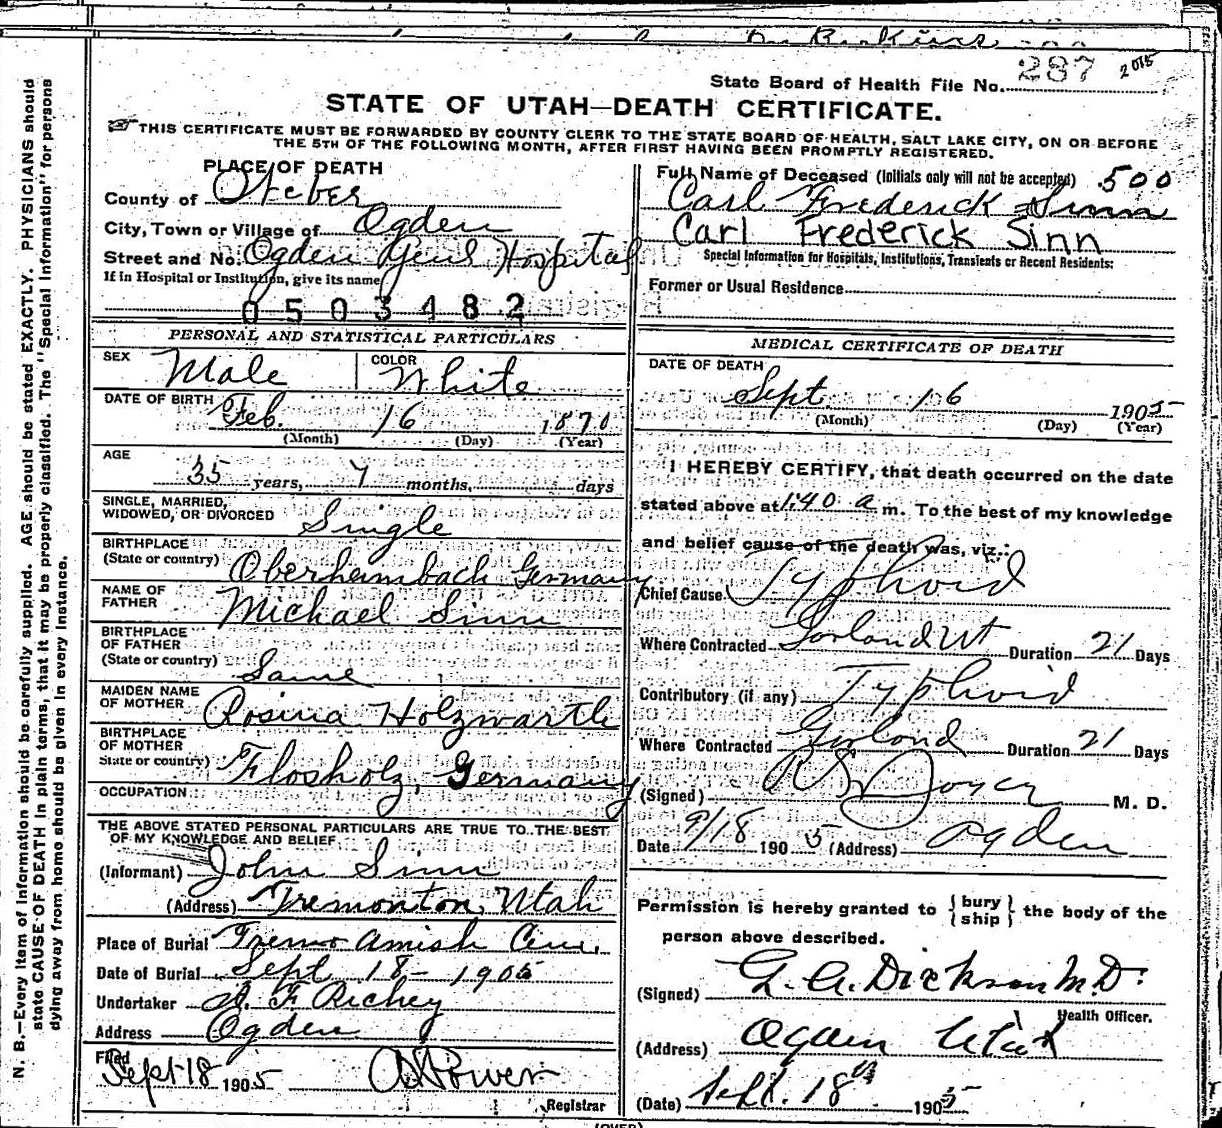 287 2015
State Board of Health File No.
STATE OF UTAH—DEATH CERTIFICATE.
THIS CERTIFICATE MUST BE FORWARDED BY COUNTY CLERK TO THE STATE BOARD OF HEALTH, SALT LAKE CITY, ON OR BEFORE
THE 5TH OF THE FOLLOWING MONTH, AFTER FIRST HAVING BEEN PROMPTLY REGISTERED.
N. B.—Every item of information should be carefully supplied. AGE should be stated EXACTLY. PHYSICIANS should
state CAUSE OF DEATH in plain terms, that it may be properly classified. The "Special Information" for persons
dying away from home should be given in every instance.
PLACE OF DEATH
County of Weber
City, Town or Village of Ogden
Street and No. Ogden Genl Hospital
If in Hospital or Institution, give its name
0503482
PERSONAL AND STATISTICAL PARTICULARS
SEX Male COLOR White
DATE OF BIRTH Feb. 16 1870
(Month) (Day) (Year)
AGE
35 years, 7 months, days
SINGLE, MARRIED,
WIDOWED, OR DIVORCED Single
BIRTHPLACE
(State or country) Oberheimbach Germany
NAME OF
FATHER Michael Sinn
BIRTHPLACE
OF FATHER
(State or country) Same
MAIDEN NAME
OF MOTHER Rosina Holzwarth
BIRTHPLACE
OF MOTHER
State or country) Flosholz, Germany
OCCUPATION
THE ABOVE STATED PERSONAL PARTICULARS ARE TRUE TO THE BEST
OF MY KNOWLEDGE AND BELIEF
(Informant) John Sinn
(Address) Tremonton, Utah
Place of Burial Tremo Amish Cem.
Date of Burial Sept 18 - 1905
Undertaker F Richey
Address Ogden
Filed
Sept 18 1905 Power
Registrar
Full Name of Deceased (Initials only will not be accepted) 500
Carl Frederick Sinn
Carl Frederick Sinn
Special Information for Hospitals, Institutions, Transients or Recent Residents:
Former or Usual Residence
MEDICAL CERTIFICATE OF DEATH
DATE OF DEATH
Sept. 16 1905
(Month) (Day) (Year)
I HEREBY CERTIFY, that death occurred on the date
stated above at 1:40 a m. To the best of my knowledge
and belief cause of the death was, viz.:
Chief Cause Typhoid
Where Contracted Garland Ut Duration 21 Days
Contributory (if any) Typhoid
Where Contracted Garland Duration 21 Days
(Signed) Joyce M. D.
Date 9/18 1905 (Address) Ogden
Permission is hereby granted to { bury ship } the body of the
person above described.
(Signed) G. A. Dickson M.D.
Health Officer.
(Address) Ogden Utah
(Date) Sept. 18th 1905
(OVER)